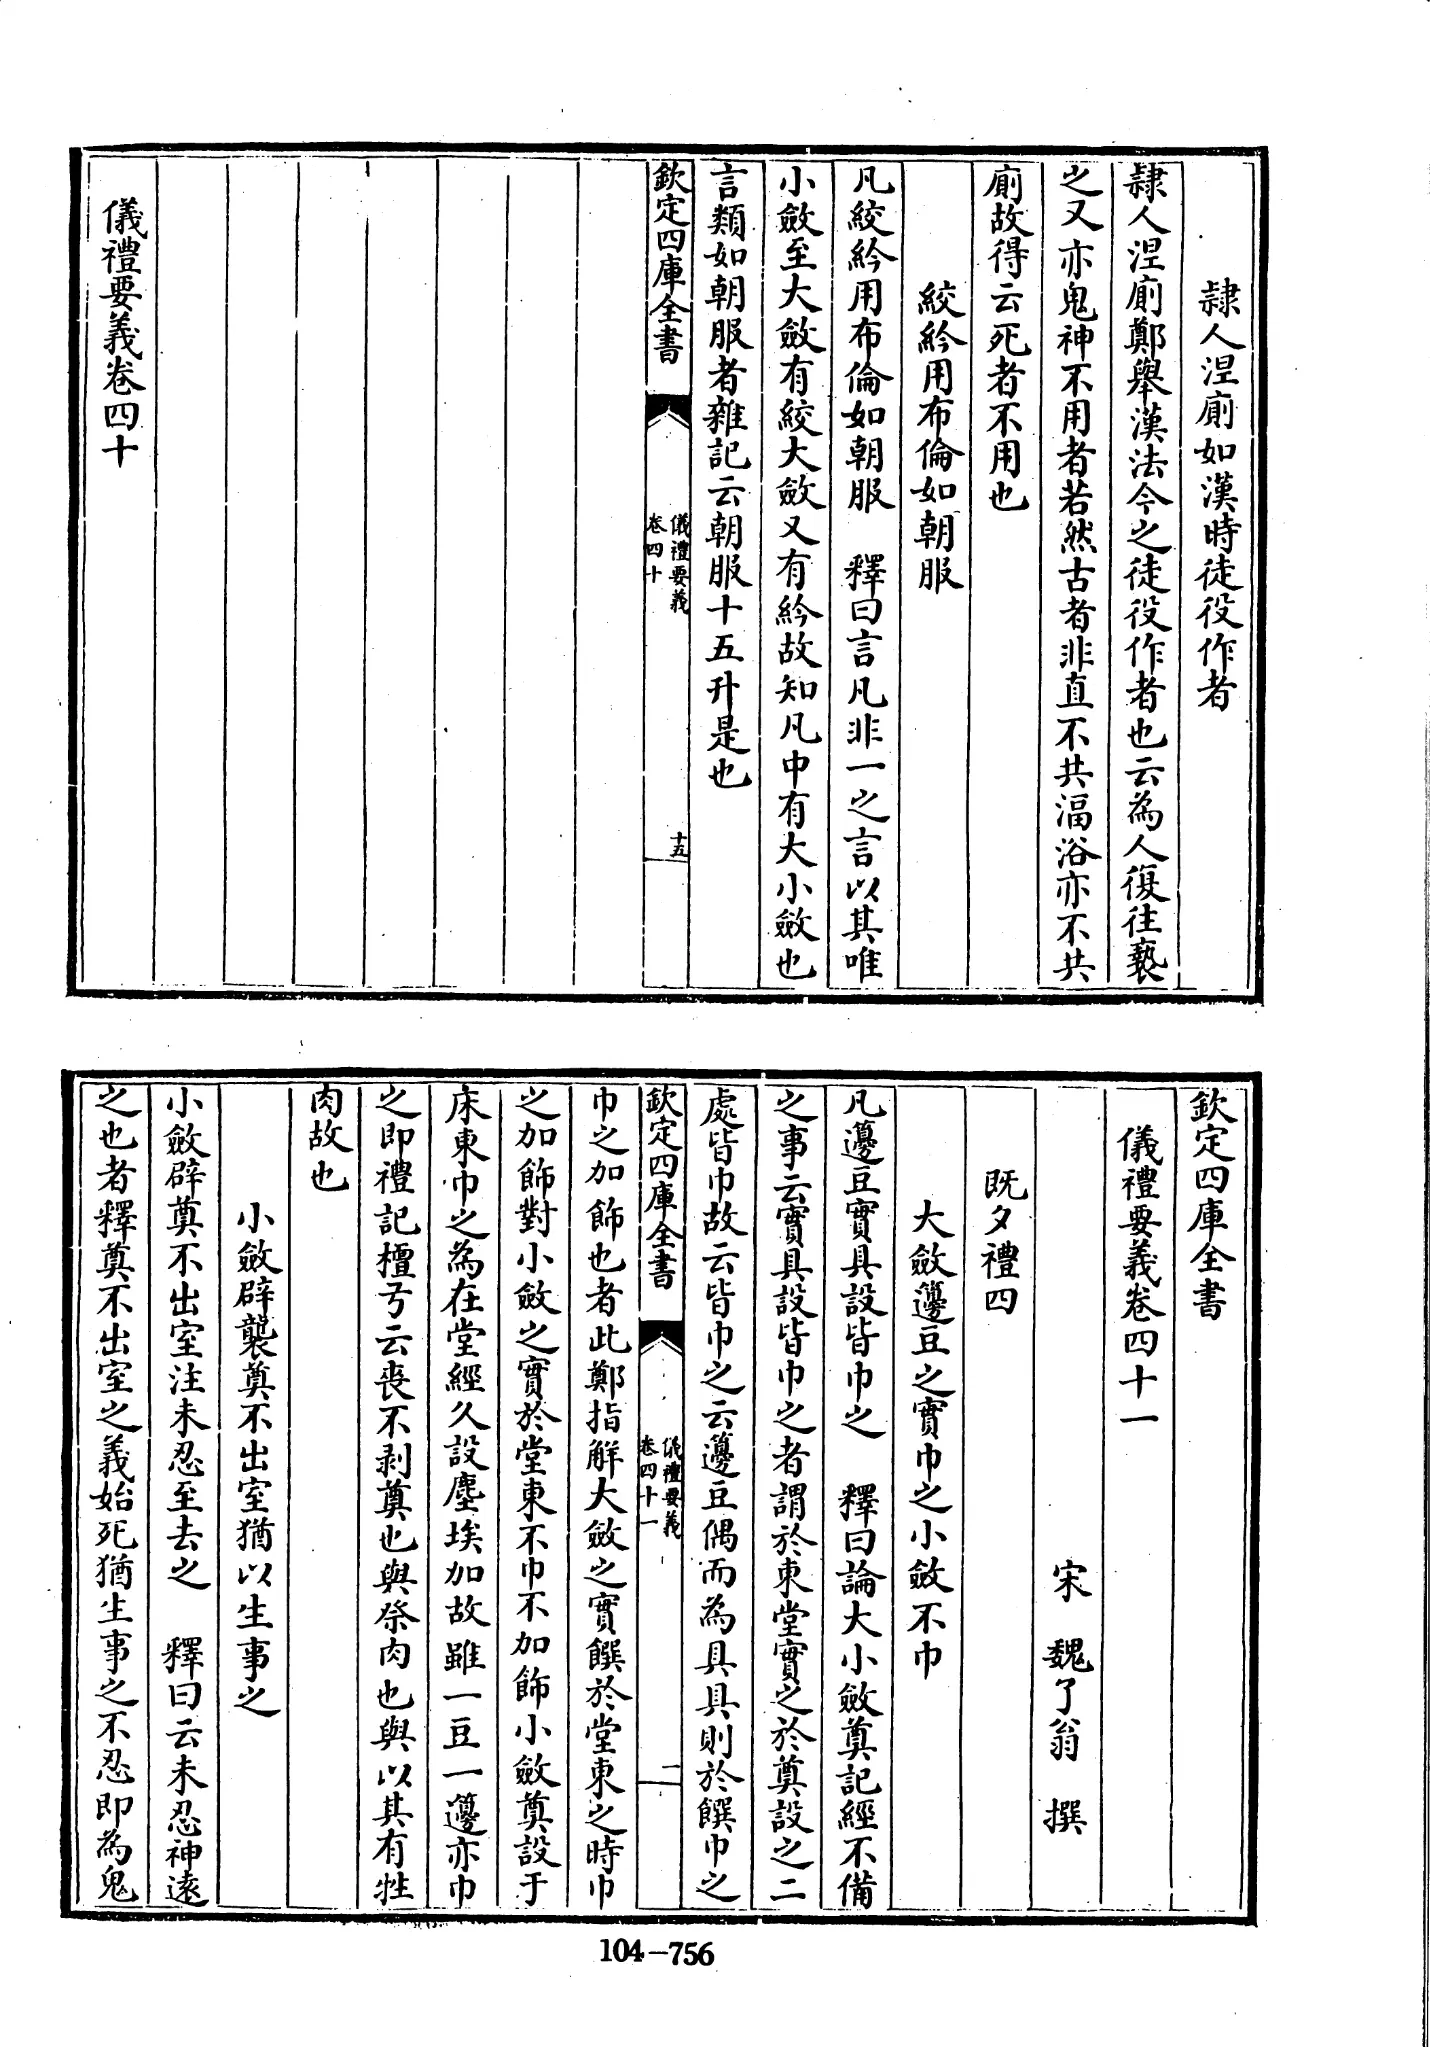 隷人涅廁如漢時徒役作者
隷人涅廁鄭舉漢法今之徒役作者也云為人復往䙝
之又亦鬼神不用者若然古者非直不共湢浴亦不共
廁故得云死者不用也
絞紟用布倫如朝服
凡絞紟用布倫如朝服　釋曰言凡非一之言以其唯
小斂至大斂有絞大斂又有紟故知凡中有大小斂也
言類如朝服者雜記云朝服十五升是也
欽定四庫全書
儀禮要義
卷四十
十五
儀禮要義卷四十
欽定四庫全書
儀禮要義卷四十一
宋　魏了翁　撰
既夕禮四
大斂籩豆之實巾之小斂不巾
凡籩豆實具設皆巾之　釋曰論大小斂奠記經不備
之事云實具設皆巾之者謂於東堂實之於奠設之二
處皆巾故云皆巾之云籩豆偶而為具具則於饌巾之
欽定四庫全書
儀禮要義
卷四十一
一
巾之加飾也者此鄭指解大斂之實饌於堂東之時巾
之加飾對小斂之實於堂東不巾不加飾小斂奠設于
床東巾之為在堂經久設塵埃加故雖一豆一籩亦巾
之即禮記檀弓云喪不剥奠也與祭肉也與以其有牲
肉故也
小斂辟襲奠不出室猶以生事之
小斂辟奠不出室注未忍至去之　釋曰云未忍神遠
之也者釋奠不出室之義始死猶生事之不忍即為鬼
104-756